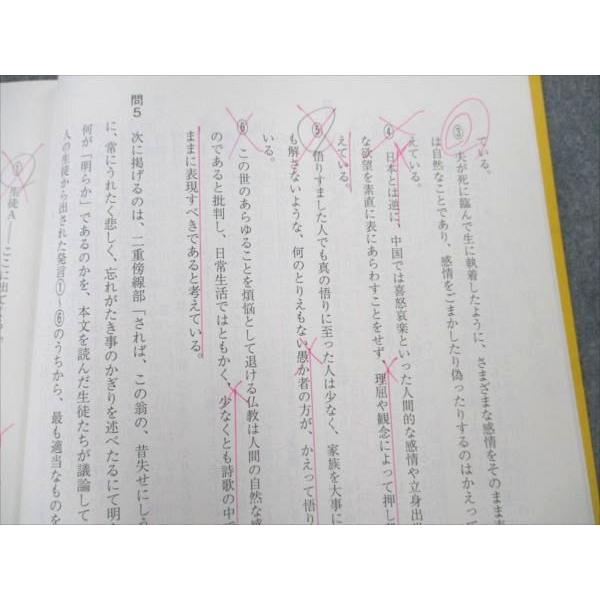 ている。
③ 夫が死に臨んで生に執着したように、さまざまな感情をそのまま表
は自然なことであり、感情をごまかしたり偽ったりするのはかえって
えている。
④ 日本とは逆に、中国では喜怒哀楽といった人間的な感情や立身出世
な欲望を素直に表にあらわすことをせず、理屈や観念によって押し
えている。
⑤ 悟りすました人でも真の悟りに至った人は少なく、家族を大事に
も解さないような、何のとりえもない愚か者の方が、かえって悟り
いる。
⑥ この世のあらゆることを煩悩として退ける仏教は人間の自然な感
のであると批判し、日常生活ではともかく、少なくとも詩歌の中で
ままに表現すべきであると考えている。
問5 次に掲げるのは、二重傍線部「されば、この翁の、昔失せにし
に、常にうれたく悲しく、忘れがたき事のかぎりを述べたるにて明
何が「明らか」であるのかを、本文を読んだ生徒たちが議論して
人の生徒から出された発言①~⑥のうちから、最も適当なものを
① 生徒A――ここに出て